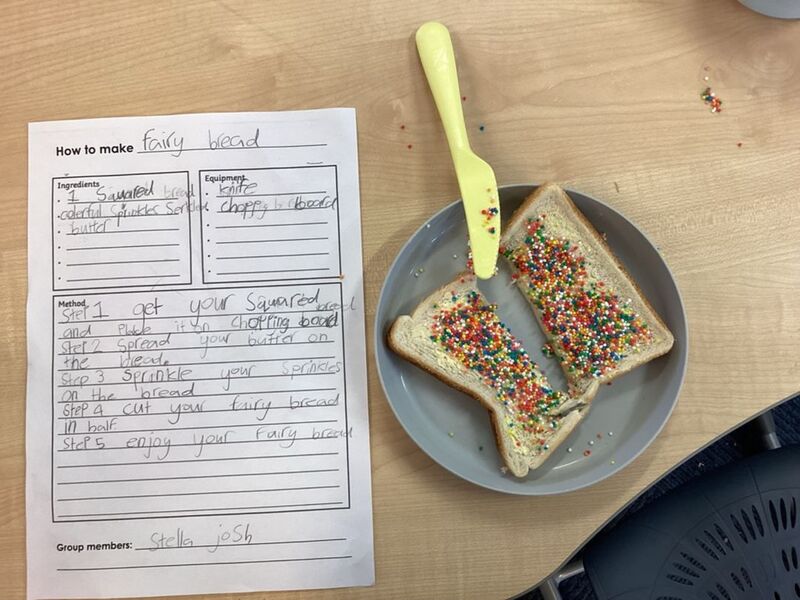 How to make fairy bread
Ingredients
. 1 Squared bread
. colerful Sprinkles
. butter
Equipment
. knife
. board
Method
Step 1 get your Squared bread
and Place it on chopping board
Step 2 Spread your butter on
the bread.
Step 3 Sprinkle your Sprinkles
on the bread
Step 4 cut your fairy bread
in half.
Step 5 enjoy your fairy bread
Group members: Stella josh